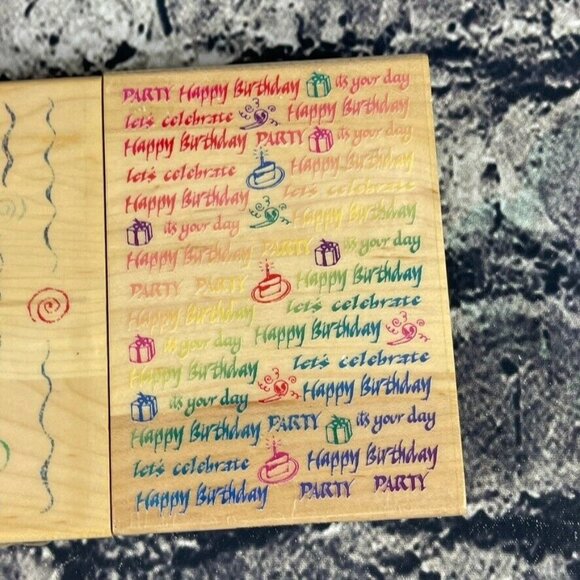 PARTY Happy Birthday it's your day
let's celebrate Happy Birthday
Happy Birthday PARTY it's your day
let's celebrate Happy Birthday
Happy Birthday let's celebrate
it's your day Happy Birthday
Happy Birthday PARTY it's your day
PARTY PARTY Happy Birthday
Happy Birthday let's celebrate
it's your day Happy Birthday
Happy Birthday let's celebrate
it's your day Happy Birthday
Happy Birthday PARTY it's your day
let's celebrate Happy Birthday
Happy Birthday PARTY PARTY